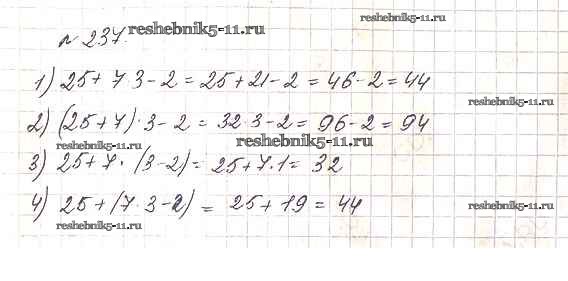 reshebnik5-11.ru
№ 237. reshebnik5-11.ru
1) 25 + 7 3 - 2 = 25 + 21 - 2 = 46 - 2 = 44
reshebnik5-11.ru
2) (25 + 7) · 3 - 2 = 32 · 3 - 2 = 96 - 2 = 94
reshebnik5-11.ru
reshebnik5-11.ru
3) 25 + 7 · (3 - 2) = 25 + 7 · 1 = 32
4) 25 + (7 · 3 - 2) = 25 + 19 = 44
reshebnik5-11.ru
reshebnik5-11.ru